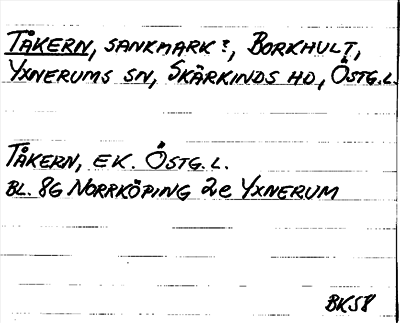 TÅKERN, SANKMARK?, BORKHULT,
YXNERUMS SN, SKÄRKINDS HD, ÖSTG.L.
TÅKERN, EK. ÖSTG.L.
BL. 8G NORRKÖPING 2e YXNERUM
BK58